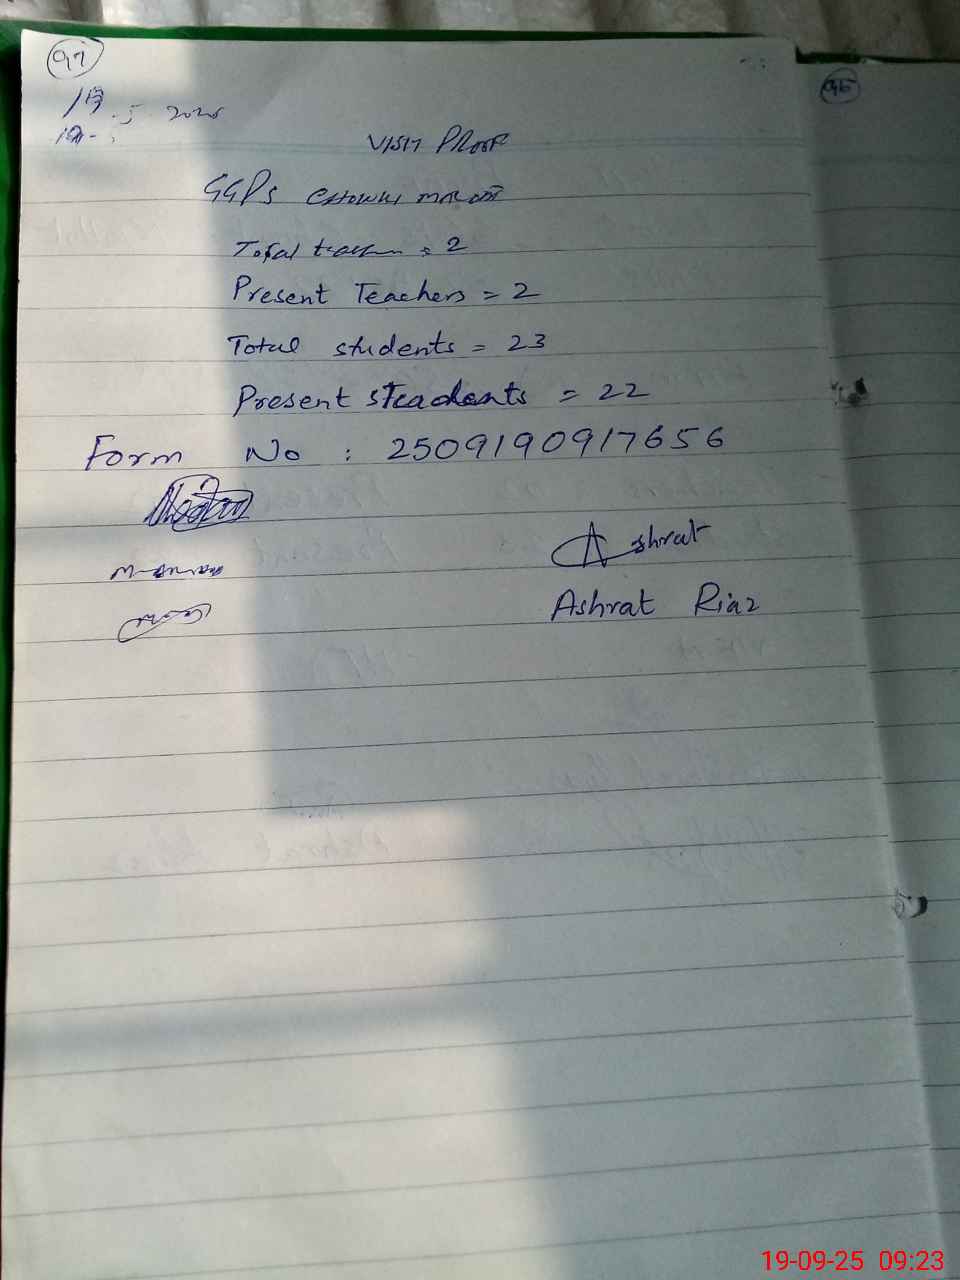 97
5 2025
VISIT PROOF
GGPS CHOWKI
Total = 2
Present Teachers = 2
Total students = 23
Present steadents = 22
Form No : 2509190917656
Ashrat
Ashrat Riaz
95
19-09-25 09:23